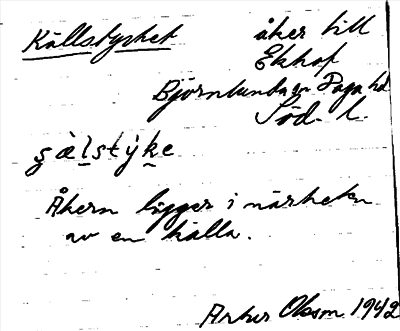 Källstycket åker till
Ekhof
Björnlunda sn Daga hd
Söd. l.
s̨àl̠stỳk̠e
Åkern ligger i närheten
av en källa.
Artur Olsson 1942